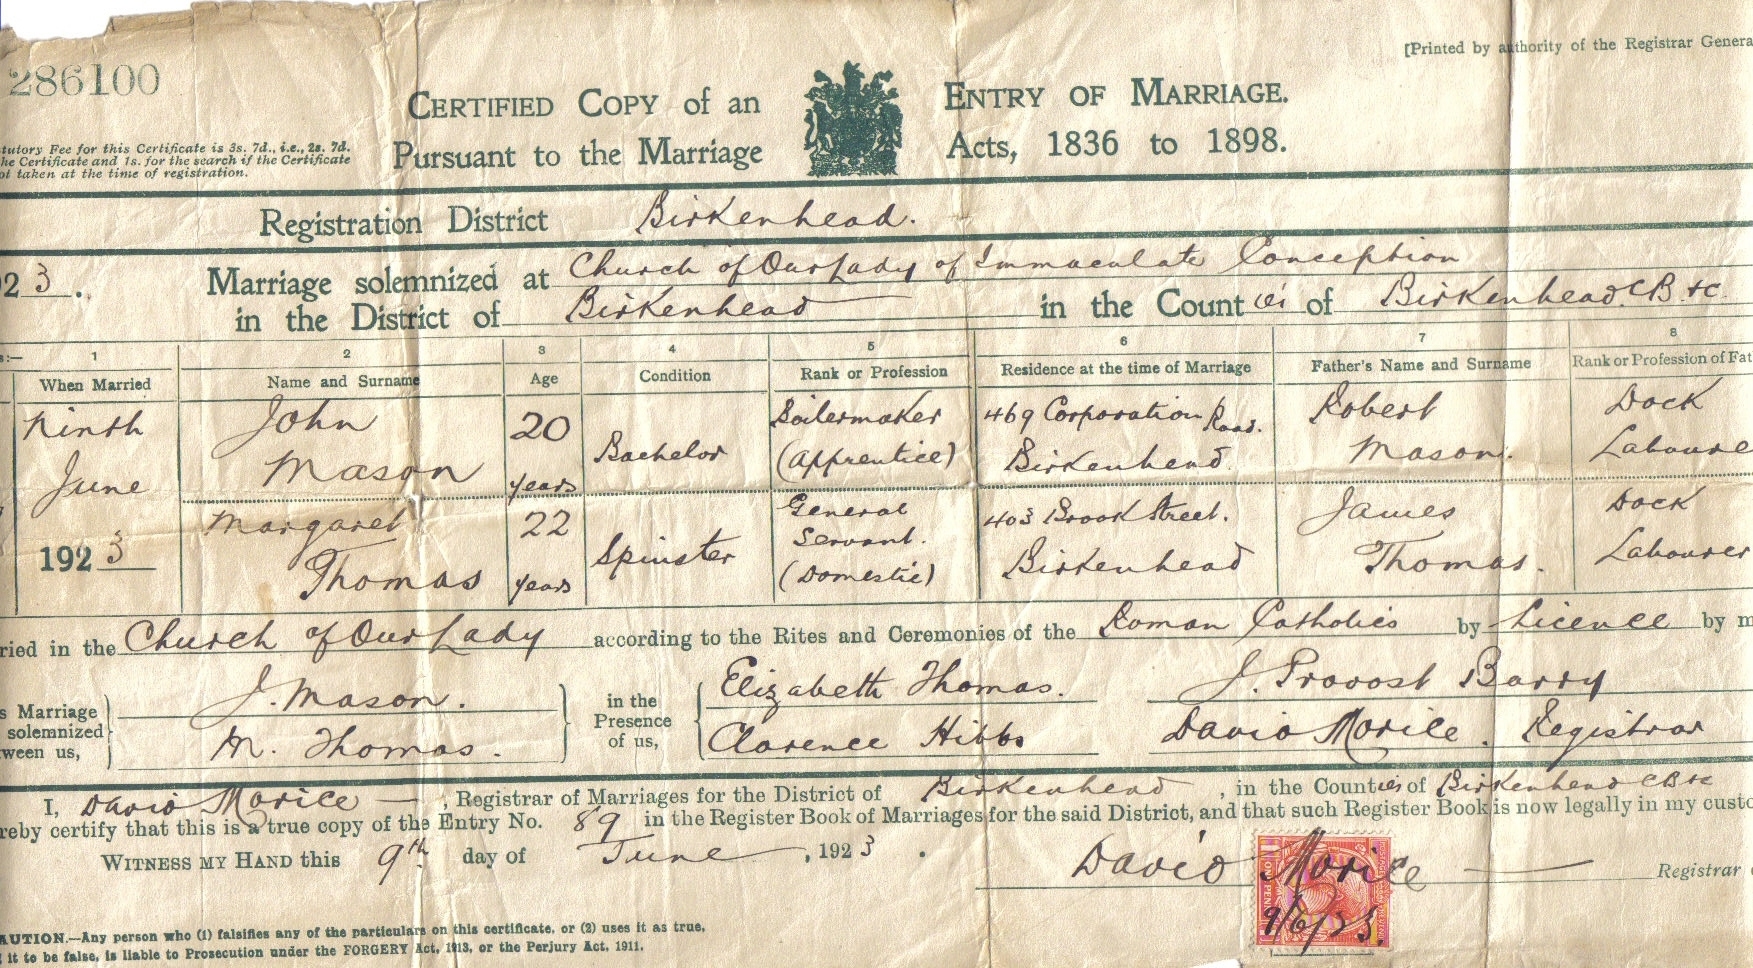 [Printed by authority of the Registrar Genera
286100
CERTIFIED COPY of an ENTRY OF MARRIAGE.
Pursuant to the Marriage Acts, 1836 to 1898.
tutory Fee for this Certificate is 3s. 7d., i.e., 2s. 7d.
he Certificate and 1s. for the search if the Certificate
ot taken at the time of registration.
Registration District Birkenhead.
923. Marriage solemnized at Church of Our Lady of Immaculate Conception
in the District of Birkenhead in the Counties of Birkenhead CB &c.
s:— 1 2 3 4 5 6 7 8
When Married Name and Surname Age Condition Rank or Profession Residence at the time of Marriage Father's Name and Surname Rank or Profession of Fat
Ninth John 20 Boilermaker 469 Corporation Road. Robert Dock
June Mason years Bachelor (Apprentice) Birkenhead. Mason. Laboure
Margaret 22 General 403 Brook Street. James Dock
1923 Spinster Servant.
Thomas years (Domestic) Birkenhead Thomas. Labourer
ried in the Church of Our Lady according to the Rites and Ceremonies of the Roman Catholics by Licence by m
s Marriage J. Mason. in the Elizabeth Thomas. J. Provost Barry
solemnized Presence
ween us, M. Thomas. of us, Clarence Hibbs David Morice. Registrar
I, David Morice, Registrar of Marriages for the District of Birkenhead, in the Counties of Birkenhead CB &c
reby certify that this is a true copy of the Entry No. 89 in the Register Book of Marriages for the said District, and that such Register Book is now legally in my custo
WITNESS MY HAND this 9th day of June, 1923.
David Morice Registrar
9/6/23.
AUTION.—Any person who (1) falsifies any of the particulars on this certificate, or (2) uses it as true,
it to be false, is liable to Prosecution under the FORGERY Act, 1913, or the Perjury Act, 1911.